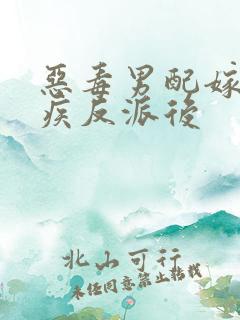 惡毒男配嫁
疾反派後
北山可行
未任同意禁止轉載